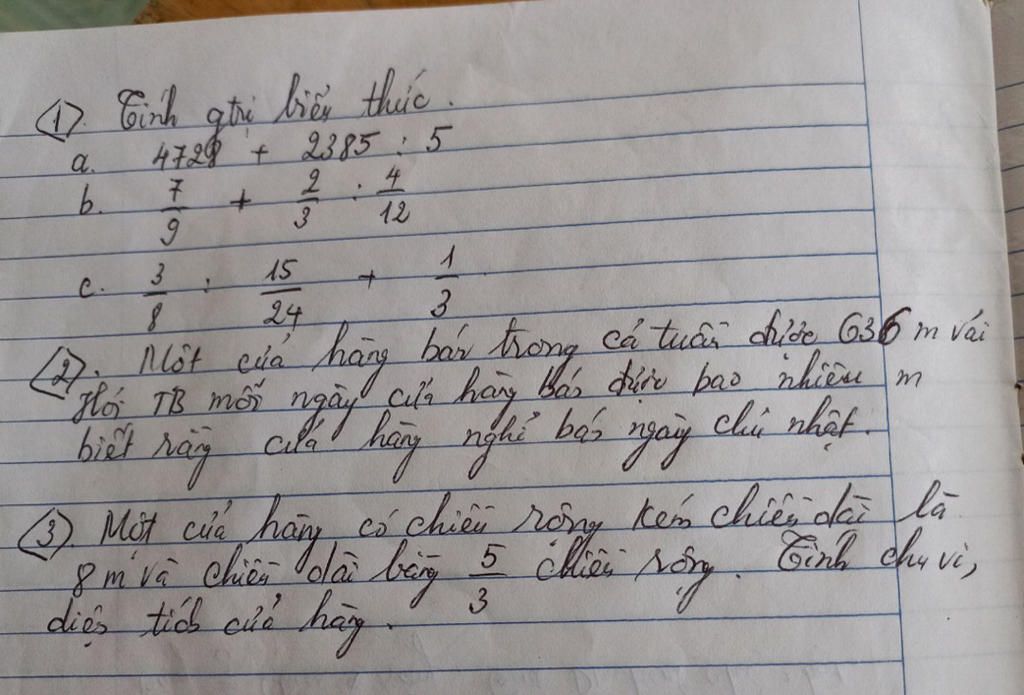 ①. Tính gtrị biểu thức.
a. 4729 + 2385 : 5
b. 7/9 + 2/3 : 4/12
c. 3/8 : 15/24 + 1/3
②. Một cửa hàng bán trong cả tuần được 636 m vải
Hỏi TB mỗi ngày cửa hàng bán được bao nhiêu m
biết rằng cửa hàng nghỉ bán ngày chủ nhật.
③. Một cửa hàng có chiều rộng kém chiều dài là
8m và chiều dài bằng 5/3 chiều rộng. Tính chu vi,
diện tích cửa hàng.